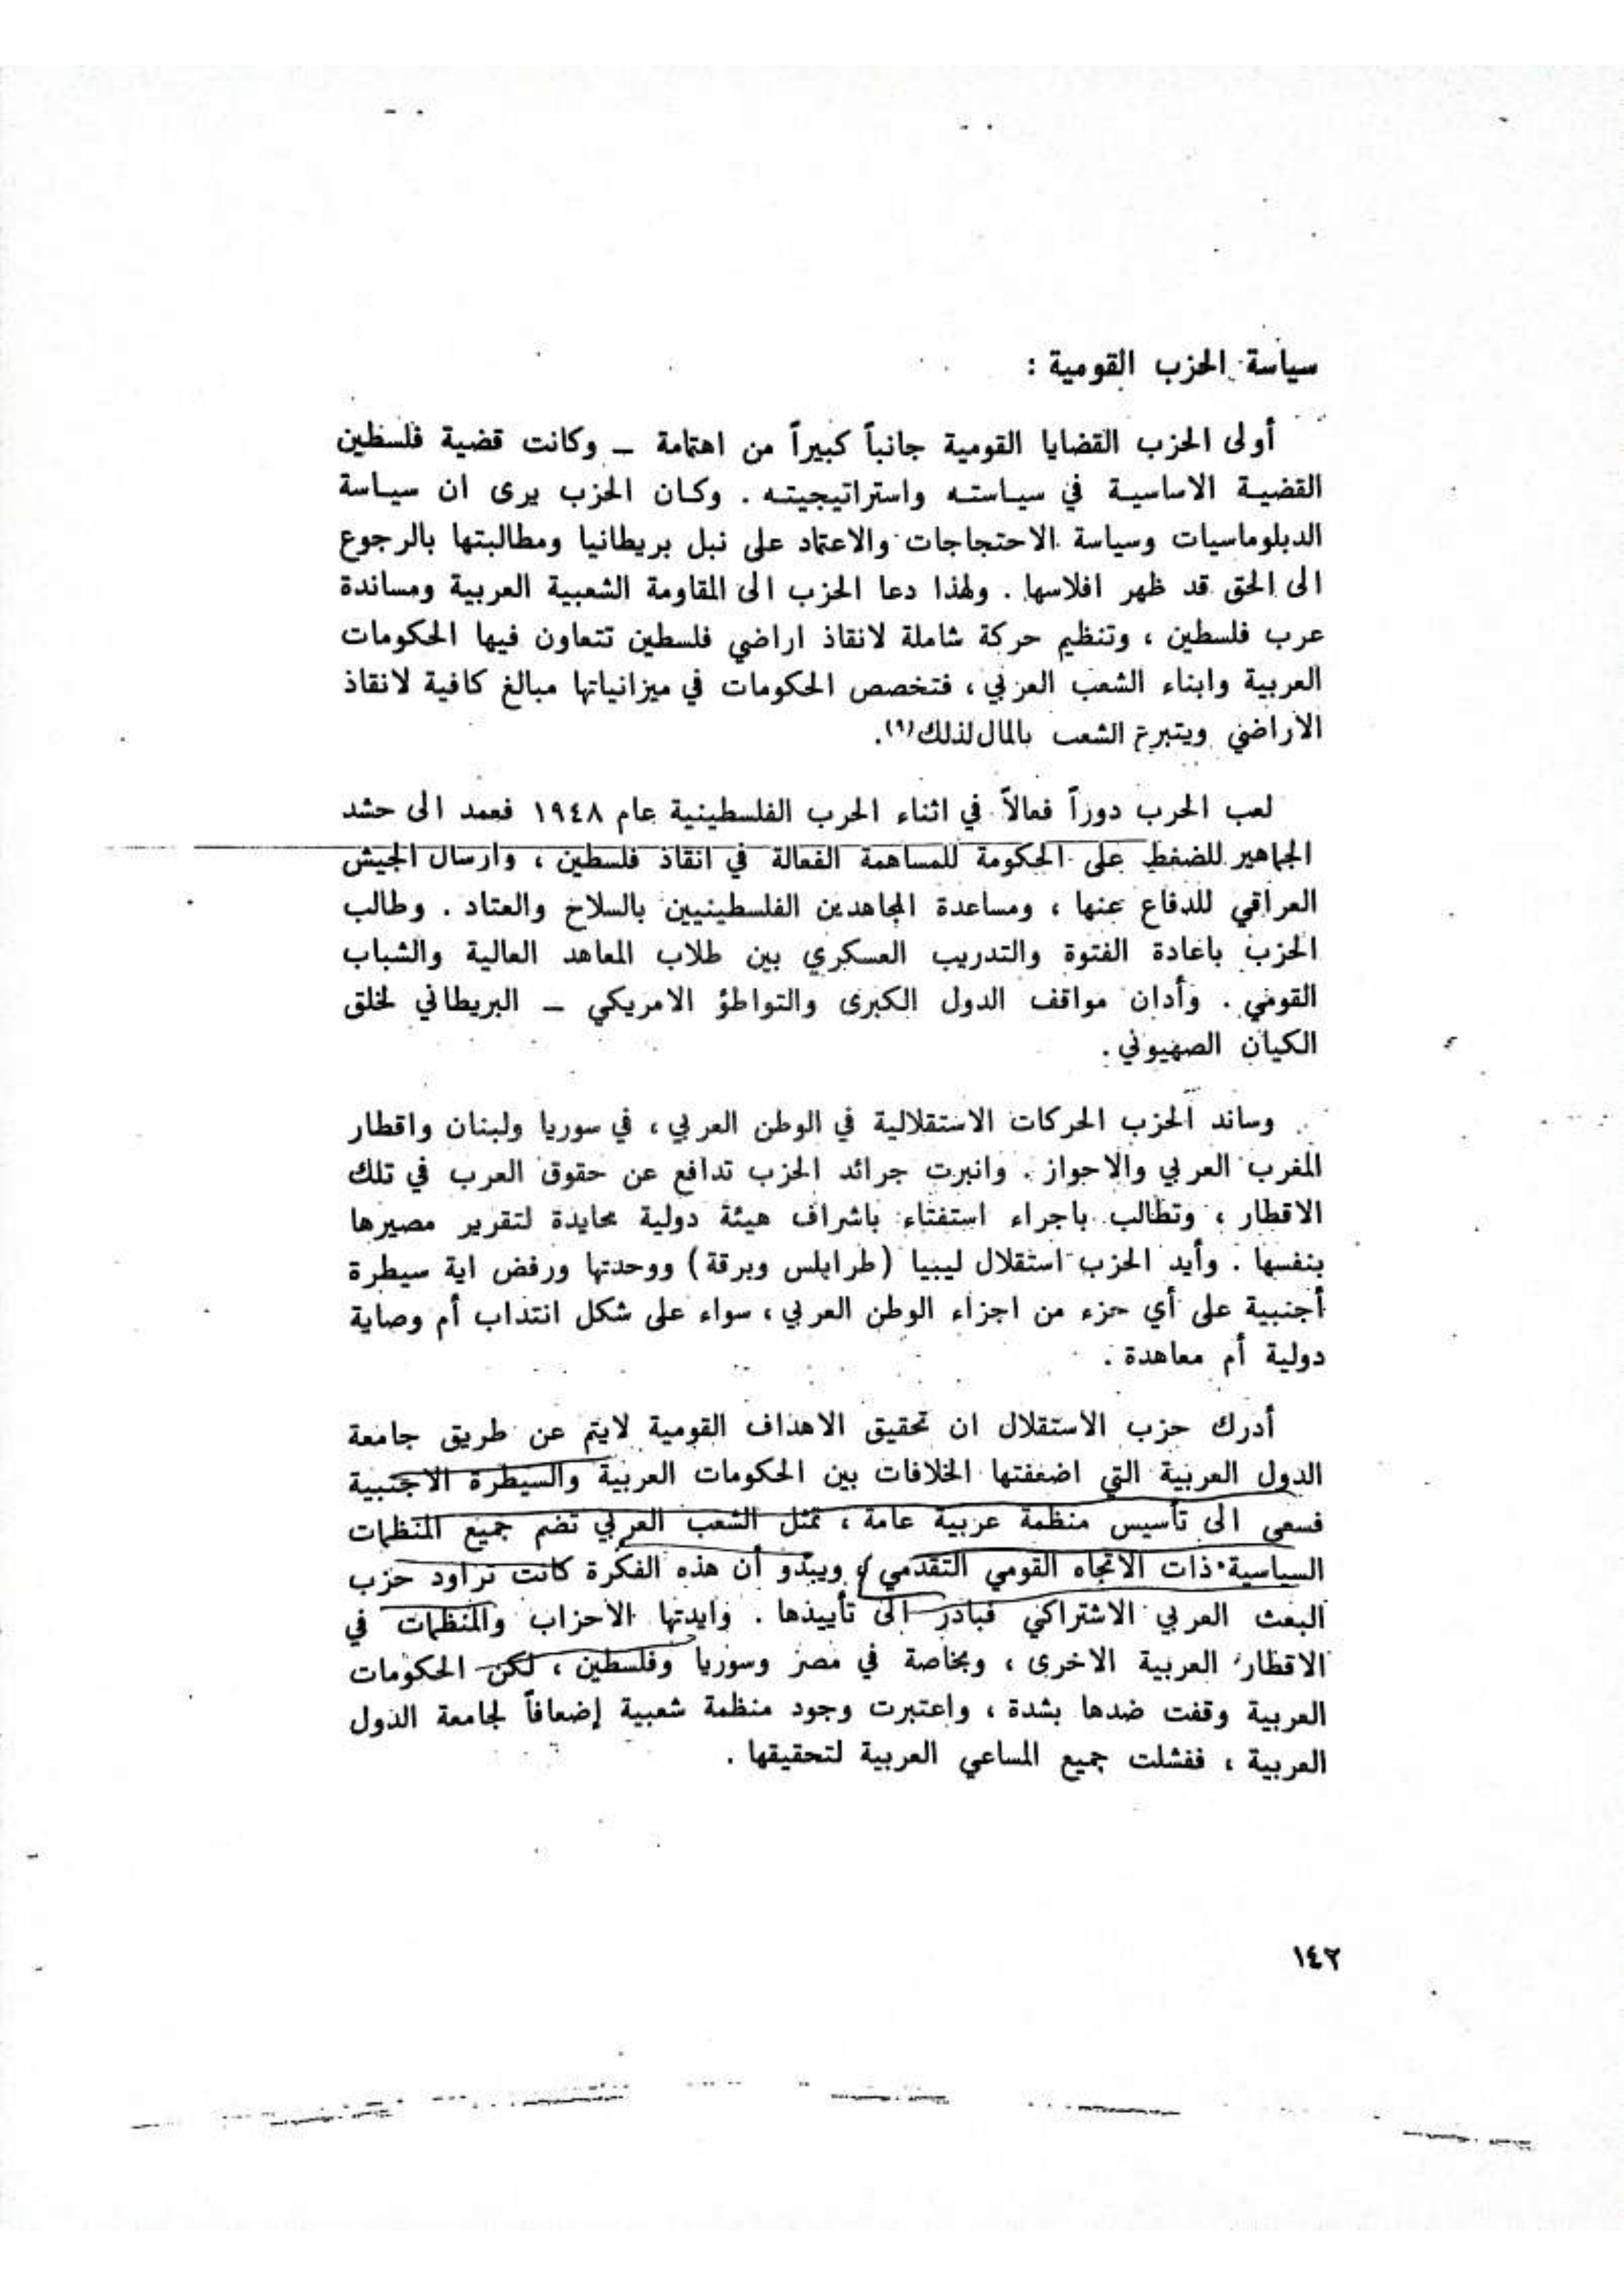 سياسة الحزب القومية :
أولى الحزب القضايا القومية جانباً كبيراً من اهتمامة ـ وكانت قضية فلسطين
القضية الاساسية في سياسته واستراتيجيته . وكان الحزب يرى ان سياسة
الدبلوماسيات وسياسة الاحتجاجات والاعتماد على نبل بريطانيا ومطالبتها بالرجوع
الى الحق قد ظهر افلاسها . ولهذا دعا الحزب الى المقاومة الشعبية العربية ومساندة
عرب فلسطين ، وتنظيم حركة شاملة لانقاذ اراضي فلسطين تتعاون فيها الحكومات
العربية وابناء الشعب العربي ، فتخصص الحكومات في ميزانياتها مبالغ كافية لانقاذ
الاراضي ويتبرع الشعب بالمال لذلك(٩).
لعب الحرب دوراً فعالاً في اثناء الحرب الفلسطينية عام ١٩٤٨ فعمد الى حشد
الجماهير للضغط على الحكومة للمساهمة الفعالة في انقاذ فلسطين ، وارسال الجيش
العراقي للدفاع عنها ، ومساعدة المجاهدين الفلسطينيين بالسلاح والعتاد . وطالب
الحزب باعادة الفتوة والتدريب العسكري بين طلاب المعاهد العالية والشباب
القومي . وأدان مواقف الدول الكبرى والتواطؤ الامريكي ـ البريطاني لخلق
الكيان الصهيوني .
وساند الحزب الحركات الاستقلالية في الوطن العربي ، في سوريا ولبنان واقطار
المغرب العربي والاحواز . وانبرت جرائد الحزب تدافع عن حقوق العرب في تلك
الاقطار ، وتطالب باجراء استفتاء باشراف هيئة دولية محايدة لتقرير مصيرها
بنفسها . وأيد الحزب استقلال ليبيا (طرابلس وبرقة) ووحدتها ورفض اية سيطرة
أجنبية على أي حزء من اجزاء الوطن العربي ، سواء على شكل انتداب أم وصاية
دولية أم معاهدة .
أدرك حزب الاستقلال ان تحقيق الاهداف القومية لايتم عن طريق جامعة
الدول العربية التي اضعفتها الخلافات بين الحكومات العربية والسيطرة الاجنبية
فسعى الى تأسيس منظمة عربية عامة ، تمثل الشعب العربي تضم جميع المنظمات
السياسية ذات الاتجاه القومي التقدمي ، ويبدو أن هذه الفكرة كانت تراود حزب
البعث العربي الاشتراكي فبادر الى تأييدها . وايدتها الاحزاب والمنظمات في
الاقطار العربية الاخرى ، وبخاصة في مصر وسوريا وفلسطين ، لكن الحكومات
العربية وقفت ضدها بشدة ، واعتبرت وجود منظمة شعبية إضعافاً لجامعة الدول
العربية ، ففشلت جميع المساعي العربية لتحقيقها .
١٤٢